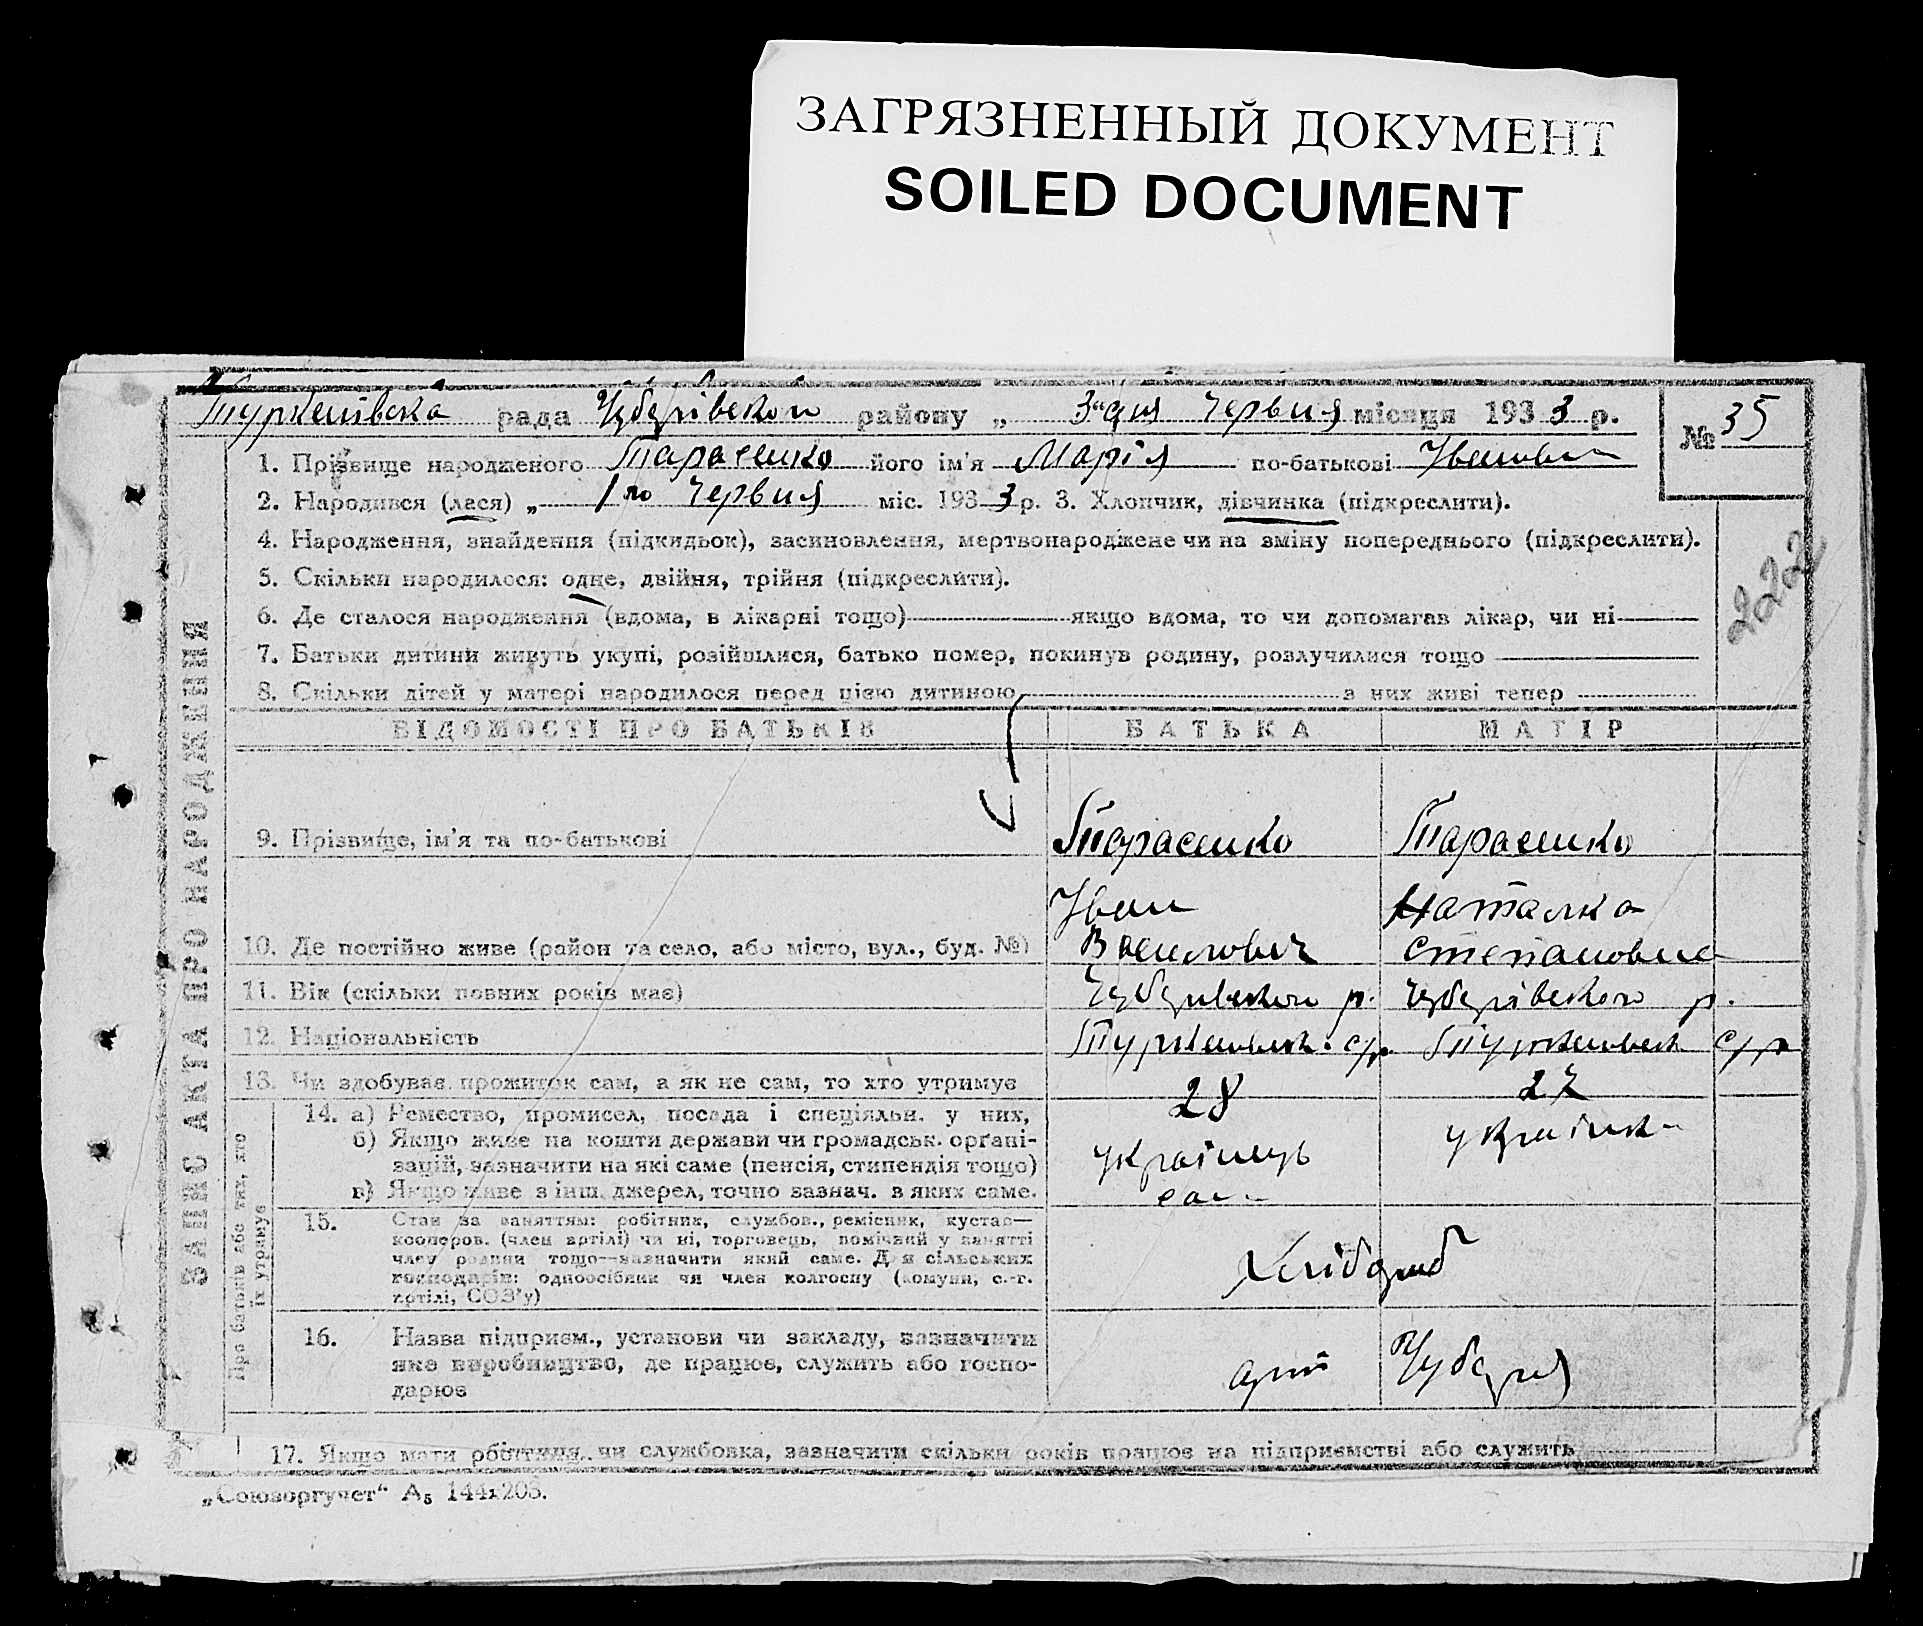 ЗАГРЯЗНЕННЫЙ ДОКУМЕНТ
SOILED DOCUMENT
рада Чубарівского району „ 3“ дня Червня місяця 193 3 р.
№ 35
1. Прізвище народженого Тарасенко його ім'я Марія по-батькові Ивановна
2. Народився (лася) „ 1го Червня міс. 193 3 р. 3. Хлопчик, дівчинка (підкреслити).
4. Народження, знайдення (підкидьок), засиновлення, мертвонароджене чи на зміну попереднього (підкреслити).
5. Скільки народилося: одне, двійня, трійня (підкреслити).
6. Де сталося народження (вдома, в лікарні тощо) якщо вдома, то чи допомагав лікар, чи ні
7. Батьки дитини живуть укупі, розійшлися, батько помер, покинув родину, розлучилися тощо
8. Скільки дітей у матері народилося перед цією дитиною з них живі тепер
222
ЗАПИС АКТА ПРО НАРОДЖЕННЯ
ВІДОМОСТІ ПРО БАТЬКІВ БАТЬКА МАТІР
9. Прізвище, ім'я та по-батькові Тарасенко Тарасенко
Иван Наталка
10. Де постійно живе (район та село, або місто, вул., буд. №) Василович Степановна
11. Вік (скільки повних років має) Чубарівского р. Чубарівского р.
12. Національність с/р с/р
13. Чи здобуває прожиток сам, а як не сам, то хто утримує 28 27
Про батьків або тих, хто
їх утримує
14. а) Ремество, промисел, посада і спеціяльн. у них,
б) Якщо живе на кошти держави чи громадськ. органі-
зацій, зазначити на які саме (пенсія, стипендія тощо)
в) Якщо живе з інш. джерел, точно зазнач. з яких саме.
українець українка
сам
15. Стан за заняттям: робітник, службов., ремісник, кустар—
кооперов. (член артілі) чи ні, торговець, помічний у занятті
член родини тощо—зазначити який саме. Для сільських
господарів: одноосібник чи член колгоспу (комуни, с.-г.
артілі, СОЗ'у)
Хлібороб
16. Назва підприєм., установи чи закладу, зазначити
яке виробництво, де працює, служить або госпо-
дарює
арт Чубаря
17. Якщо мати робітниця чи службовка, зазначити скільки років працює на підприємстві або служить
„Союзоргучет“ А₅ 144x205.